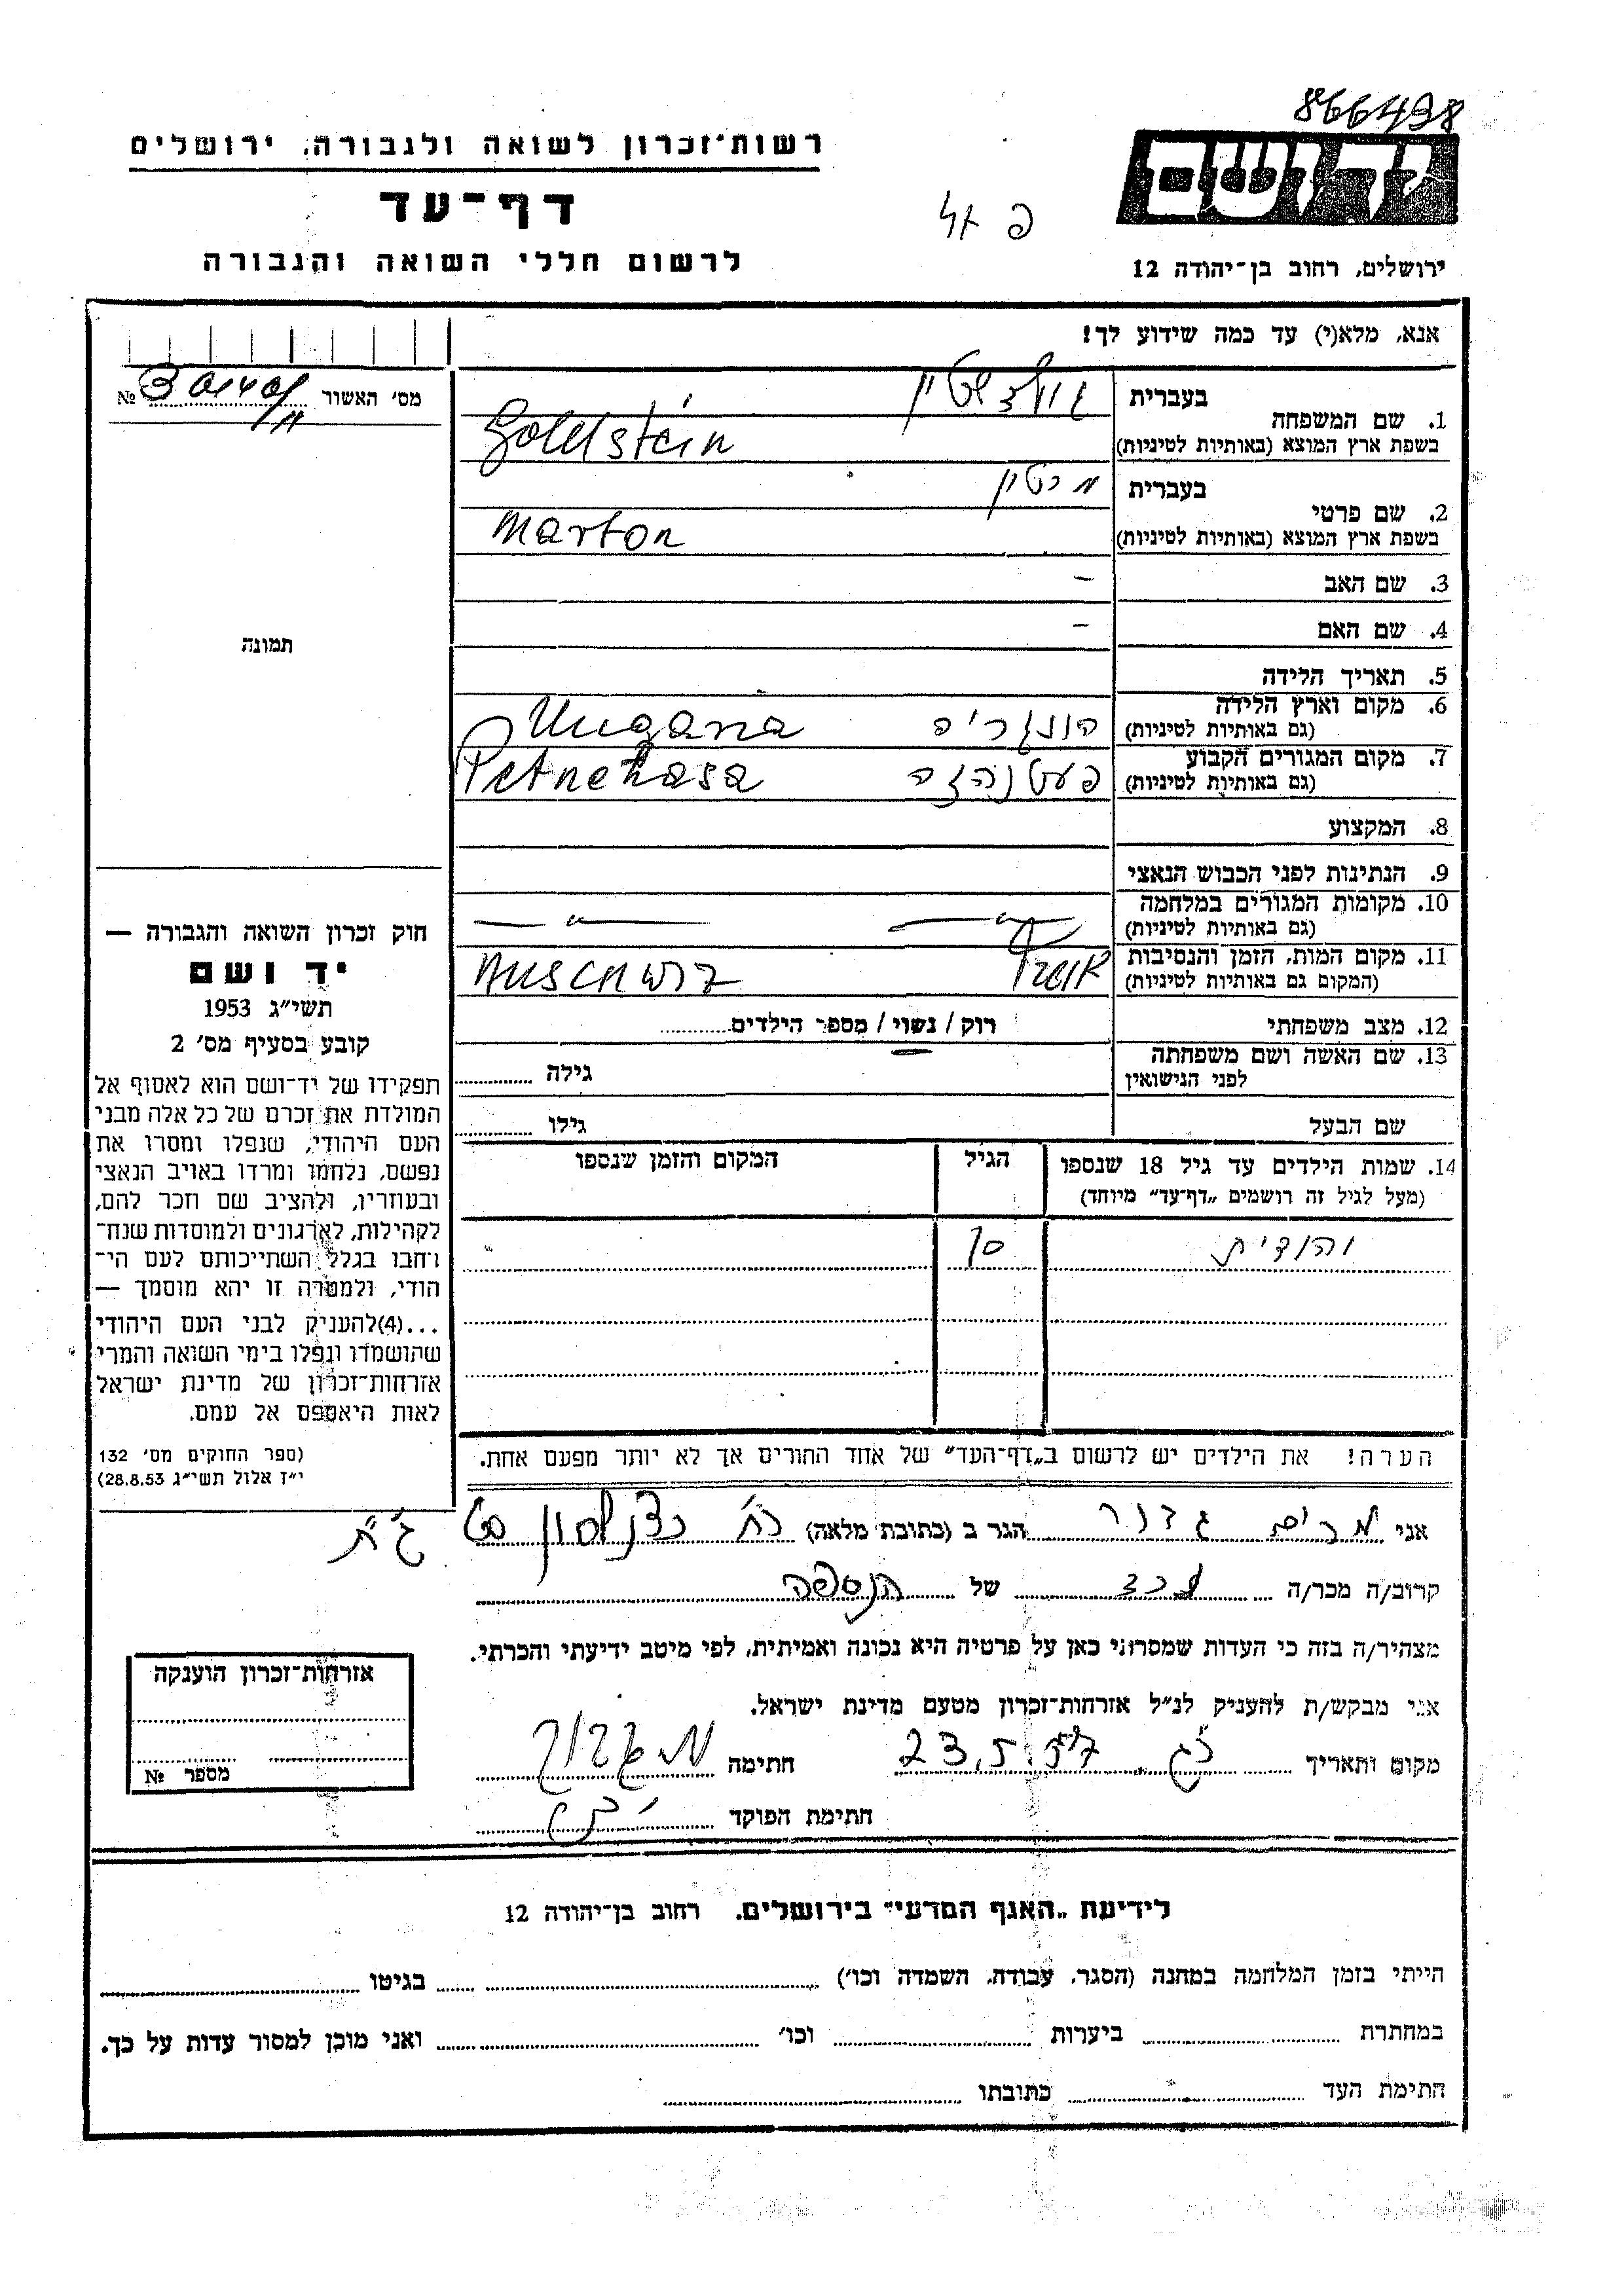 866498
יד ושם
רשות־זכרון לשואה ולגבורה, ירושלים
דף־עד
לרשום חללי השואה והגבורה
ירושלים, רחוב בן־יהודה 12
אנא, מלא(י) עד כמה שידוע לך!
מס׳ האשור № 
1. שם המשפחה
בעברית גולדשטיין
בשפת ארץ המוצא (באותיות לטיניות) Goldstein
2. שם פרטי
בעברית מרטין
בשפת ארץ המוצא (באותיות לטיניות) Marton
3. שם האב –
4. שם האם –
5. תאריך הלידה
6. מקום וארץ הלידה
(גם באותיות לטיניות) הונגריה
7. מקום המגורים הקבוע
(גם באותיות לטיניות) פעטנהזה Petnehasa
8. המקצוע
9. הנתינות לפני הכבוש הנאצי
10. מקומות המגורים במלחמה
(גם באותיות לטיניות) — " — — " —
11. מקום המות, הזמן והנסיבות
(המקום גם באותיות לטיניות) Auschwitz
12. מצב משפחתי רוק / נשוי / מספר הילדים
13. שם האשה ושם משפחתה
לפני הנישואין גילה
שם הבעל גילו
14. שמות הילדים עד גיל 18 שנספו הגיל המקום והזמן שנספו
(מעל לגיל זה רושמים „דף־עד” מיוחד)
יהודית 10 "
הערה! את הילדים יש לרשום ב„דף־העד” של אחד ההורים אך לא יותר מפעם אחת.
תמונה
חוק זכרון השואה והגבורה —
יד ושם
תשי״ג 1953
קובע בסעיף מס׳ 2
תפקידו של יד־ושם הוא לאסוף אל
המולדת את זכרם של כל אלה מבני
העם היהודי, שנפלו ומסרו את
נפשם, נלחמו ומרדו באויב הנאצי
ובעוזריו, ולהציב שם וזכר להם,
לקהילות, לארגונים ולמוסדות שנח־
רבו בגלל השתייכותם לעם הי־
הודי, ולמטרה זו יהא מוסמך —
...(4)להעניק לבני העם היהודי
שהושמדו ונפלו בימי השואה והמרי
אזרחות־זכרון של מדינת ישראל
לאות היאספם אל עמם.
(ספר החוקים מס׳ 132
י״ז אלול תשי״ג 28.8.53)
אני מרים גדור הגר ב (כתובת מלאה) רח׳ כצנלסון
קרוב/ה מכר/ה של הנספה
מצהיר/ה בזה כי העדות שמסרתי כאן על פרטיה היא נכונה ואמיתית, לפי מיטב ידיעתי והכרתי.
אני מבקש/ת להעניק לנ״ל אזרחות־זכרון מטעם מדינת ישראל.
מקום ותאריך 23.5.57 חתימה
חתימת הפוקד
אזרחות־זכרון הוענקה
מספר №
לידיעת „האגף המדעי” בירושלים, רחוב בן־יהודה 12
הייתי בזמן המלחמה במחנה (הסגר, עבודה, השמדה וכו׳) בגיטו
במחתרת ביערות וכו׳ ואני מוכן למסור עדות על כך.
חתימת העד כתובתו